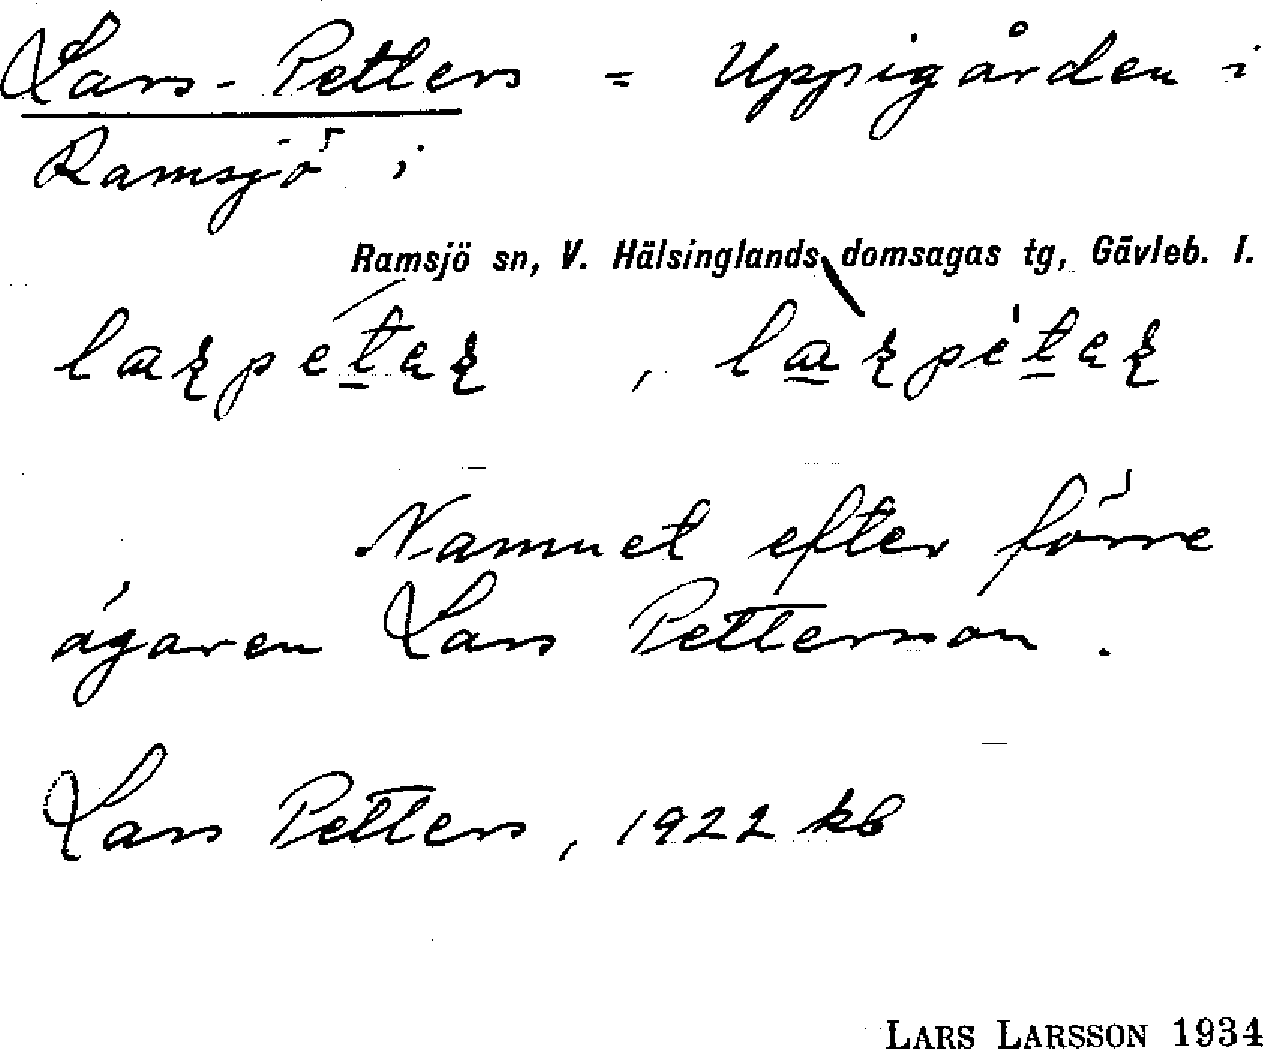 Lars-Petters = Uppigården i
Ramsjö i
Ramsjö sn, V. Hälsinglands domsagas tg, Gävleb. l.
Namnet efter förre
ägaren Lars Petterson.
Lars Petters, 1922 kb
LARS LARSSON 1934